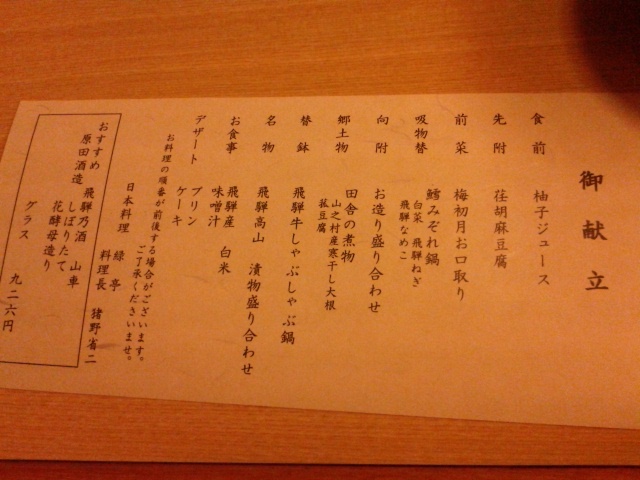 御献立
食前 柚子ジュース
先附 荏胡麻豆腐
前菜 梅初月お口取り
吸物替 鱈みぞれ鍋
白菜 飛騨ねぎ
飛騨なめこ
向附 お造り盛り合わせ
郷土物 田舎の煮物
山之村産寒干し大根
菰豆腐
替鉢 飛騨牛しゃぶしゃぶ鍋
名物 飛騨高山 漬物盛り合わせ
お食事 飛騨産 白米
味噌汁
デザート プリン
ケーキ
お料理の順番が前後する場合がございます。
ご了承くださいませ。
日本料理 緑亭
料理長 猪野省二
おすすめ
原田酒造 飛騨乃酒 山車
しぼりたて
花酵母造り
グラス 九二六円